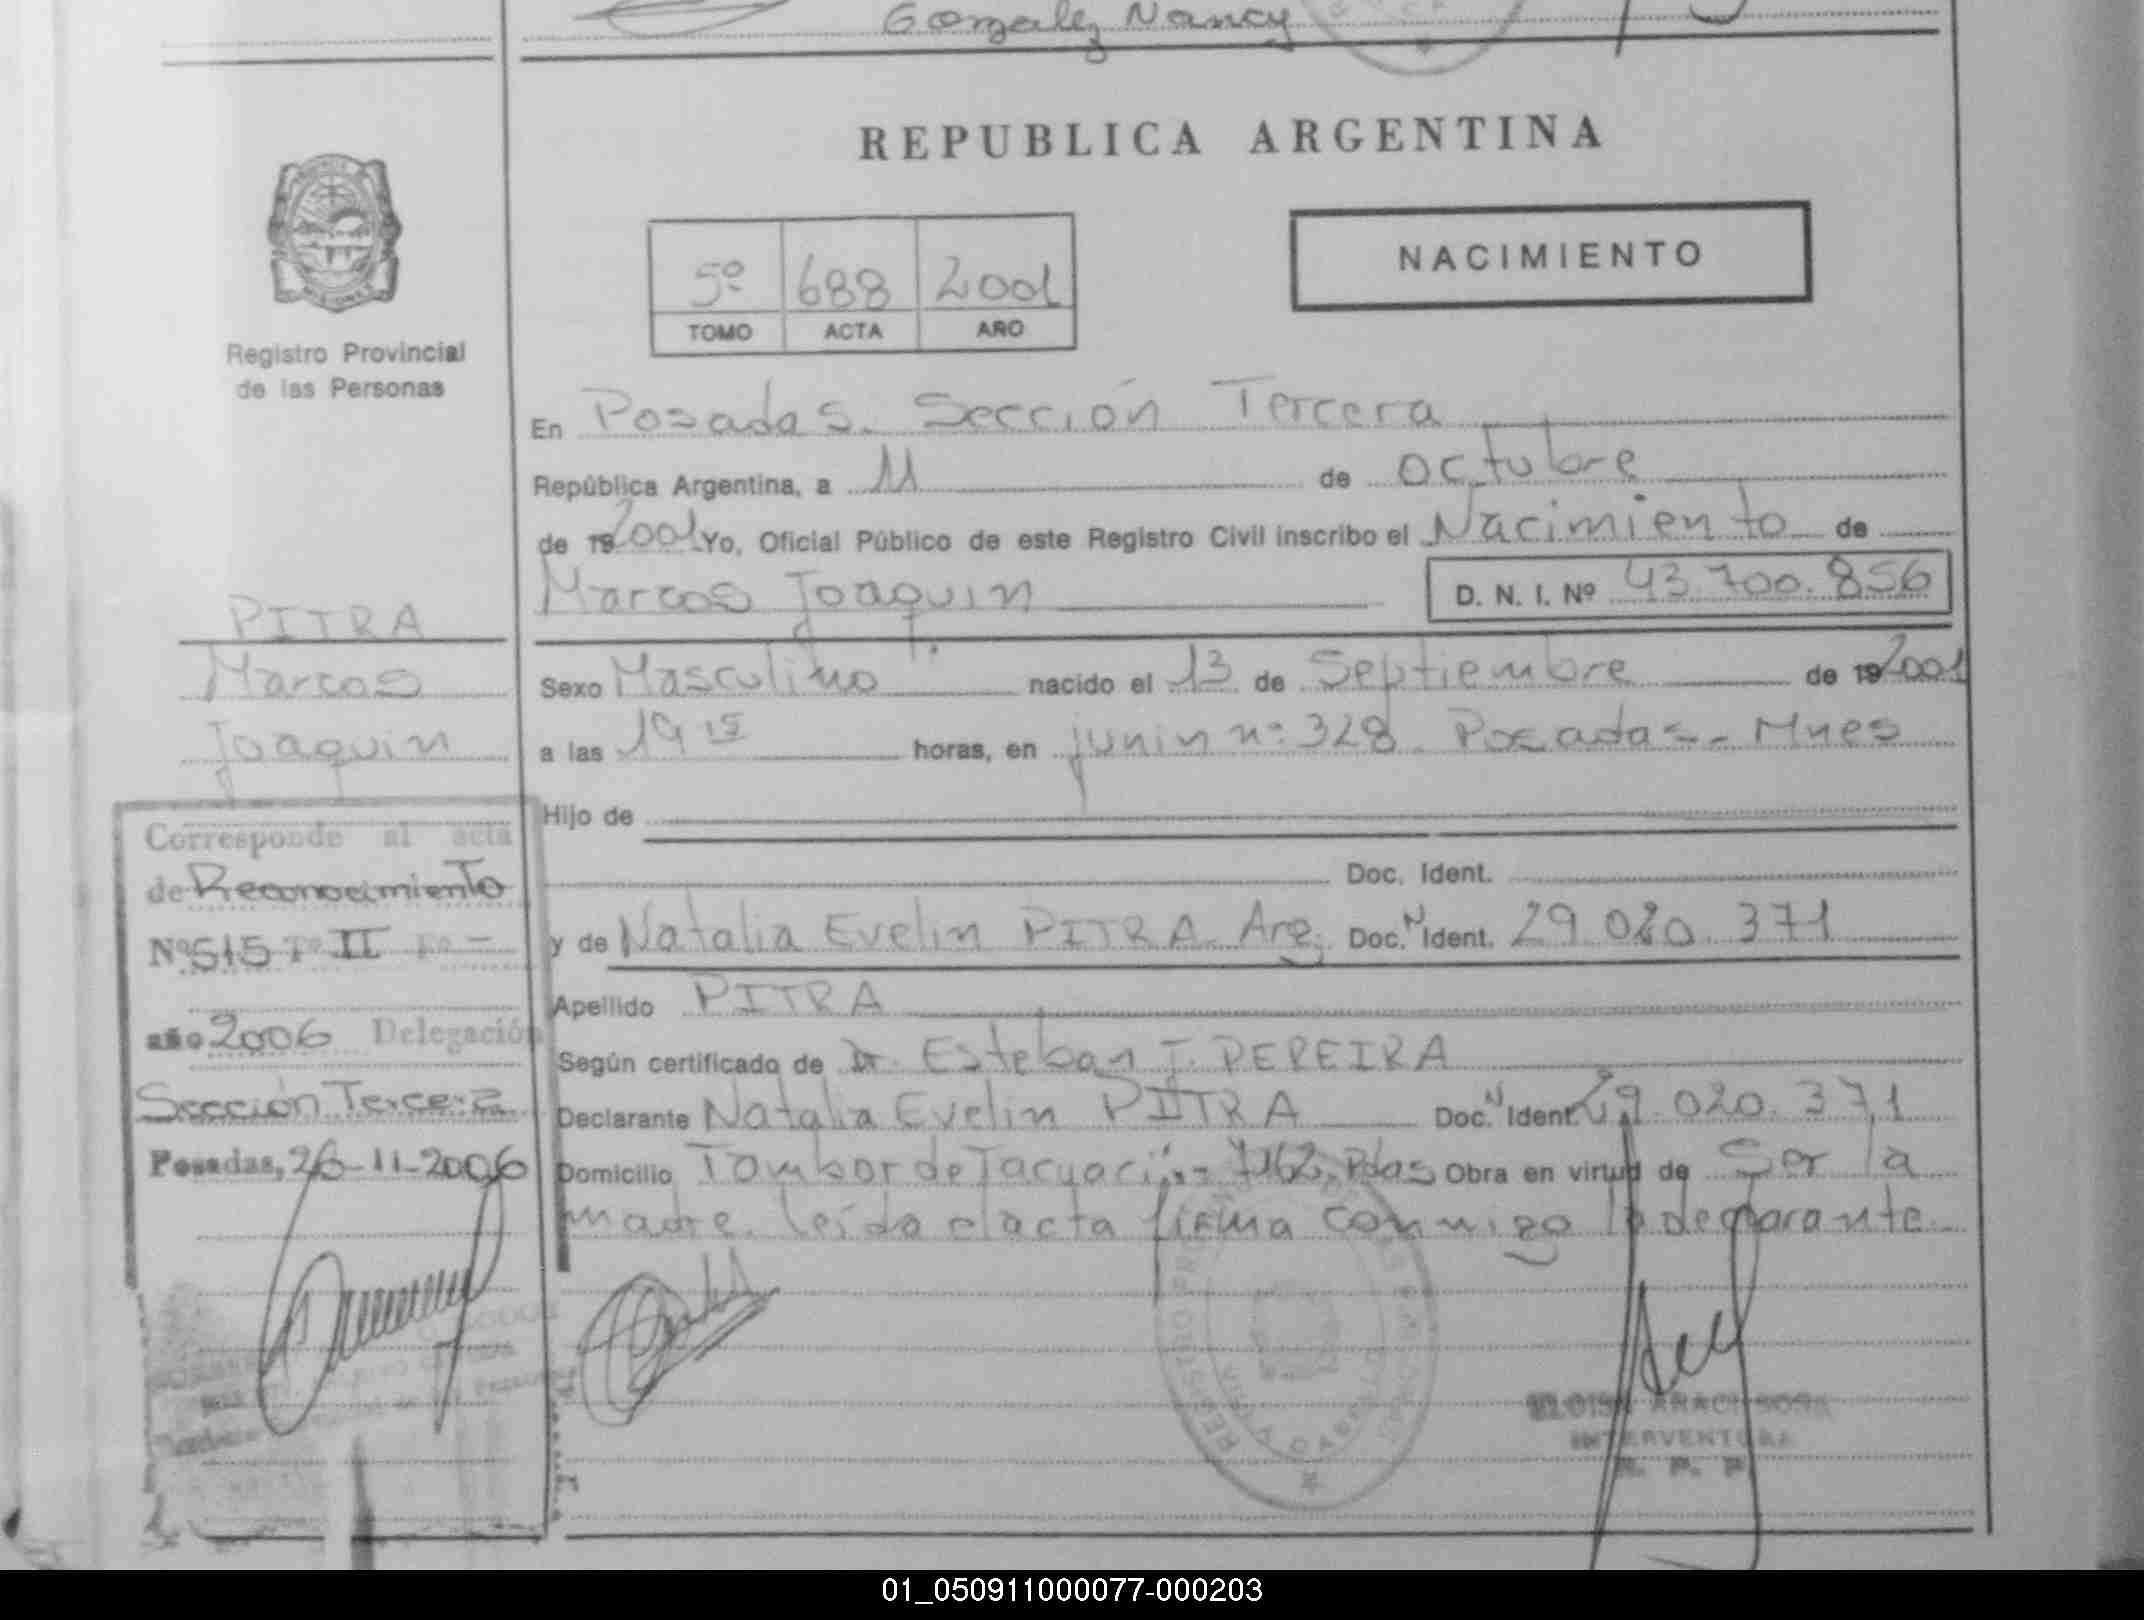 Gonzalez Nancy
REPUBLICA ARGENTINA
NACIMIENTO
5º 688 2001
TOMO ACTA AÑO
Registro Provincial
de las Personas
En Posadas. Sección Tercera
República Argentina, a 11 de octubre
de 19 2001 Yo, Oficial Público de este Registro Civil inscribo el Nacimiento de
Marcos Joaquin D. N. I. Nº 43.700.856
PITRA
Marcos
Joaquin
Sexo Masculino nacido el 13 de Septiembre de 19 2001
a las 19 15 horas, en junin nº 328. Posadas - Mnes
Hijo de
Doc. Ident.
y de Natalia Evelin PITRA Arg. Doc. N Ident. 29 020. 371
Apellido PITRA
Según certificado de Dr. Esteban J. PEREIRA
Declarante Natalia Evelin PITRA Doc. N Ident. 29. 020. 371
Domicilio Tambor de Tacuari Pdas Obra en virtud de Ser la
madre. leída el acta firma conmigo la declarante.
Corresponde al acta
de Reconocimiento
Nº 515 Tº II Fº -
año 2006 Delegación
Sección Tercera
Posadas, 26-11-2006
INTERVENTORA
R. P. P.
01_050911000077-000203